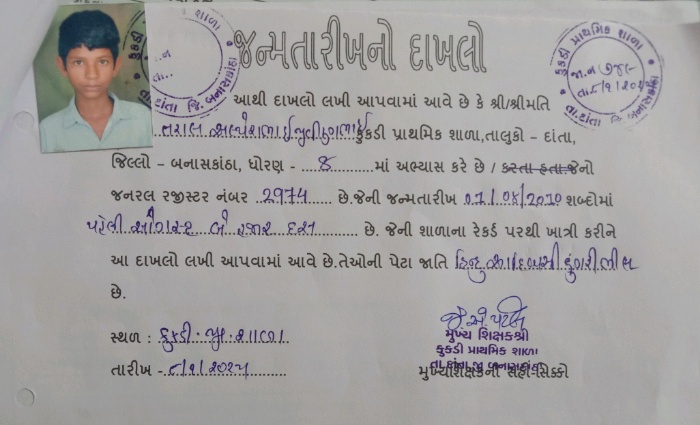 જન્મતારીખનો દાખલો
કુકડી પ્રાથમિક શાળા
તા.દાંતા જિ. બનાસકાંઠા
આથી દાખલો લખી આપવામાં આવે છે કે શ્રી/શ્રીમતિ
તરાલ કુકડી પ્રાથમિક શાળા,તાલુકો – દાંતા,
જિલ્લો – બનાસકાંઠા, ધોરણ - ...8...........માં અભ્યાસ કરે છે / કરતા હતા.જેનો
જનરલ રજીસ્ટર નંબર ..2974........ છે.જેની જન્મતારીખ 01/08/2010 શબ્દોમાં
પહેલી ઓગસ્ટ બે હજાર દસ ............ છે. જેની શાળાના રેકર્ડ પરથી ખાત્રી કરીને
આ દાખલો લખી આપવામાં આવે છે.તેઓની પેટા જાતિ હિન્દુ આદિવાસી ડુંગરીભીલ
છે.
સ્થળ : કુકડી પ્રા. શાળા
જે.એ.પટેલ
મુખ્ય શિક્ષકશ્રી
કુકડી પ્રાથમિક શાળા
તા.દાંતા જી.બનાસકાંઠા
તારીખ -
મુખ્યશિક્ષકની સહી સિક્કો